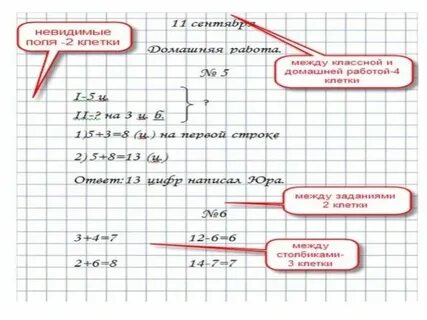 невидимые
поля -2 клетки
11 сентября.
Домашняя работа.
между классной и
домашней работой-4
клетки
№ 5
I-5 ц.
?
II-? на 3 ц. б.
1)5+3=8 (ц.) на первой строке
2)5+8=13 (ц.)
Ответ:13 цифр написал Юра.
между заданиями
2 клетки
№6
3+4=7 12-6=6
между
столбиками-
3 клетки
2+6=8 14-7=7